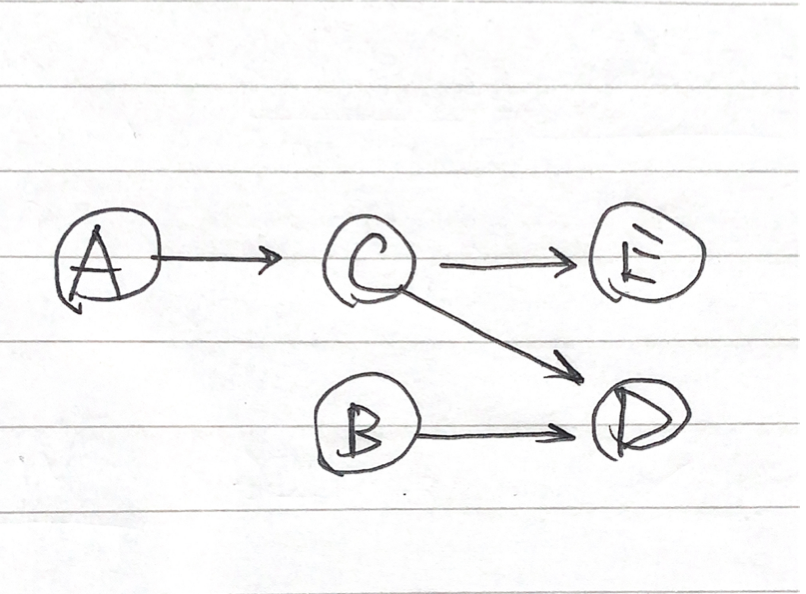 A C E
B D